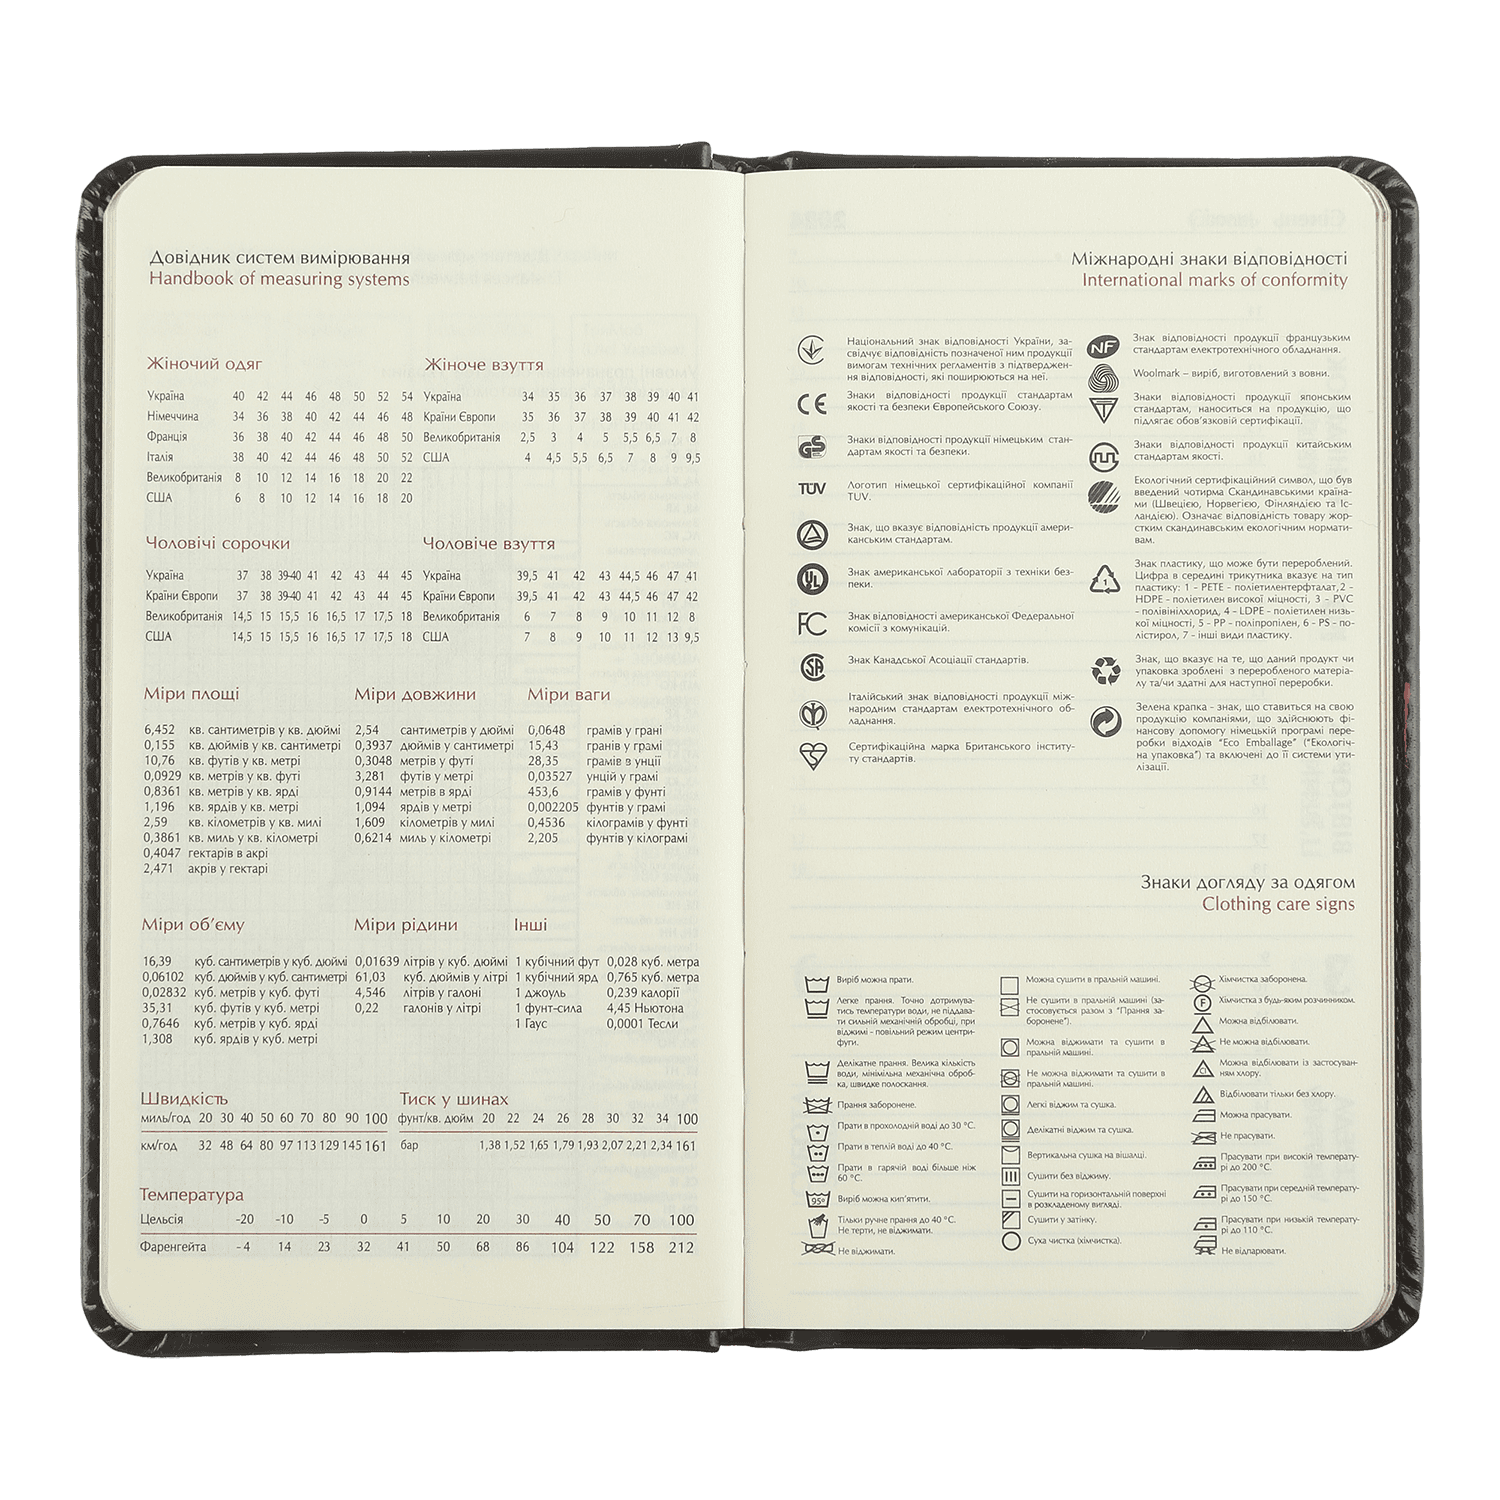 Довідник систем вимірювання
Handbook of measuring systems
Жіночий одяг
Україна 40 42 44 46 48 50 52 54
Німеччина 34 36 38 40 42 44 46 48
Франція 36 38 40 42 44 46 48 50
Італія 38 40 42 44 46 48 50 52
Великобританія 8 10 12 14 16 18 20 22
США 6 8 10 12 14 16 18 20
Жіноче взуття
Україна 34 35 36 37 38 39 40 41
Країни Європи 35 36 37 38 39 40 41 42
Великобританія 2,5 3 4 5 5,5 6,5 7 8
США 4 4,5 5,5 6,5 7 8 9 9,5
Чоловічі сорочки
Україна 37 38 39-40 41 42 43 44 45
Країни Європи 37 38 39-40 41 42 43 44 45
Великобританія 14,5 15 15,5 16 16,5 17 17,5 18
США 14,5 15 15,5 16 16,5 17 17,5 18
Чоловіче взуття
Україна 39,5 41 42 43 44,5 46 47 41
Країни Європи 39,5 41 42 43 44,5 46 47 42
Великобританія 6 7 8 9 10 11 12 8
США 7 8 9 10 11 12 13 9,5
Міри площі
6,452 кв. сантиметрів у кв. дюймі
0,155 кв. дюймів у кв. сантиметрі
10,76 кв. футів у кв. метрі
0,0929 кв. метрів у кв. футі
0,8361 кв. метрів у кв. ярді
1,196 кв. ярдів у кв. метрі
2,59 кв. кілометрів у кв. милі
0,3861 кв. миль у кв. кілометрі
0,4047 гектарів в акрі
2,471 акрів у гектарі
Міри довжини
2,54 сантиметрів у дюймі
0,3937 дюймів у сантиметрі
0,3048 метрів у футі
3,281 футів у метрі
0,9144 метрів в ярді
1,094 ярдів у метрі
1,609 кілометрів у милі
0,6214 миль у кілометрі
Міри ваги
0,0648 грамів у грані
15,43 гранів у грамі
28,35 грамів в унції
0,03527 унцій у грамі
453,6 грамів у фунті
0,002205 фунтів у грамі
0,4536 кілограмів у фунті
2,205 фунтів у кілограмі
Міри об’єму
16,39 куб. сантиметрів у куб. дюймі
0,06102 куб. дюймів у куб. сантиметрі
0,02832 куб. метрів у куб. футі
35,31 куб. футів у куб. метрі
0,7646 куб. метрів у куб. ярді
1,308 куб. ярдів у куб. метрі
Міри рідини
0,01639 літрів у куб. дюймі
61,03 куб. дюймів у літрі
4,546 літрів у галоні
0,22 галонів у літрі
Інші
1 кубічний фут 0,028 куб. метра
1 кубічний ярд 0,765 куб. метра
1 джоуль 0,239 калорії
1 фунт-сила 4,45 Ньютона
1 Гаус 0,0001 Тесли
Швидкість
миль/год 20 30 40 50 60 70 80 90 100
км/год 32 48 64 80 97 113 129 145 161
Тиск у шинах
фунт/кв. дюйм 20 22 24 26 28 30 32 34 100
бар 1,38 1,52 1,65 1,79 1,93 2,07 2,21 2,34 161
Температура
Цельсія -20 -10 -5 0 5 10 20 30 40 50 70 100
Фаренгейта -4 14 23 32 41 50 68 86 104 122 158 212
Міжнародні знаки відповідності
International marks of conformity
Національний знак відповідності України, за-
свідчує відповідність позначеної ним продукції
вимогам технічних регламентів з підтверджен-
ня відповідності, які поширюються на неї.
CE
Знаки відповідності продукції стандартам
якості та безпеки Європейського Союзу.
GS
Знаки відповідності продукції німецьким стан-
дартам якості та безпеки.
TÜV
Логотип німецької сертифікаційної компанії
TUV.
Знак, що вказує відповідність продукції амери-
канським стандартам.
UL
Знак американської лабораторії з техніки без-
пеки.
FC
Знак відповідності американської Федеральної
комісії з комунікацій.
SA
Знак Канадської Асоціації стандартів.
Італійський знак відповідності продукції між-
народним стандартам електротехнічного об-
ладнання.
Сертифікаційна марка Британського інститу-
ту стандартів.
NF
Знак відповідності продукції французьким
стандартам електротехнічного обладнання.
Woolmark – виріб, виготовлений з вовни.
Знаки відповідності продукції японським
стандартам, наноситься на продукцію, що
підлягає обов’язковій сертифікації.
Знаки відповідності продукції китайським
стандартам якості.
Екологічний сертифікаційний символ, що був
введений чотирма Скандинавськими країна-
ми (Швецією, Норвегією, Фінляндією та Іс-
ландією). Означає відповідність товару жор-
стким скандинавським екологічним нормати-
вам.
1
Знак пластику, що може бути перероблений.
Цифра в середині трикутника вказує на тип
пластику: 1 - PETE - поліетилентерфталат,2 -
HDPE - поліетилен високої міцності, 3 – PVC
- полівінілхлорид, 4 – LDPE - поліетилен низь-
кої міцності, 5 - PP - поліпропілен, 6 - PS - по-
лістирол, 7 - інші види пластику.
Знак, що вказує на те, що даний продукт чи
упаковка зроблені з переробленого матеріа-
лу та/чи здатні для наступної переробки.
Зелена крапка - знак, що ставиться на свою
продукцію компаніями, що здійснюють фі-
нансову допомогу німецькій програмі пере-
робки відходів “Eco Emballage” (“Екологіч-
на упаковка”) та включені до її системи ути-
лізації.
Знаки догляду за одягом
Clothing care signs
Виріб можна прати.
Легке прання. Точно дотримува-
тись температури води, не піддава-
ти сильній механічній обробці, при
віджимі - повільний режим центри-
фуги.
Делікатне прання. Велика кількість
води, мінімальна механічна оброб-
ка, швидке полоскання.
Прання заборонене.
Прати в прохолодній воді до 30 °С.
Прати в теплій воді до 40 °С.
Прати в гарячій воді більше ніж
60 °С.
95°
Виріб можна кип’ятити.
Тільки ручне прання до 40 °С.
Не терти, не віджимати.
Не віджимати.
Можна сушити в пральній машині.
Не сушити в пральній машині (за-
стосовується разом з “Прання за-
боронене”).
Можна віджимати та сушити в
пральній машині.
Не можна віджимати та сушити в
пральній машині.
Легкі віджим та сушка.
Делікатні віджим та сушка.
Вертикальна сушка на вішалці.
Сушити без віджиму.
Сушити на горизонтальній поверхні
в розкладеному вигляді.
Сушити у затінку.
Суха чистка (хімчистка).
Хімчистка заборонена.
F
Хімчистка з будь-яким розчинником.
Можна відбілювати.
Не можна відбілювати.
Cl
Можна відбілювати із застосуван-
ням хлору.
Відбілювати тільки без хлору.
Можна прасувати.
Не прасувати.
Прасувати при високій температу-
рі до 200 °С.
Прасувати при середній температу-
рі до 150 °С.
Прасувати при низькій температу-
рі до 110 °С.
Не відпарювати.